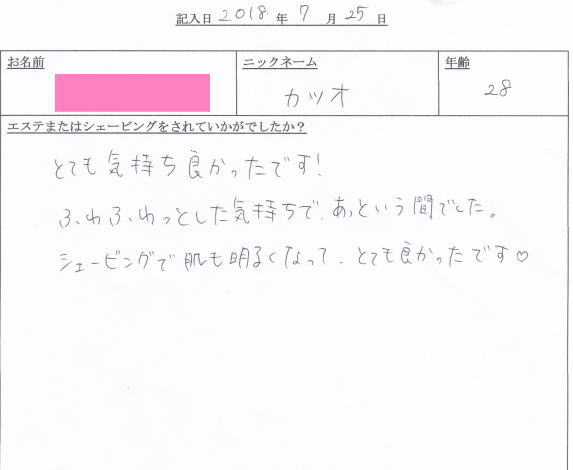 記入日 2018 年 7 月 25 日
お名前 ニックネーム 年齢
カツオ 28
エステまたはシェービングをされていかがでしたか？
とても気持ち良かったです!
ふわふわっとした気持ちで、あっという間でした。
シェービングで肌も明るくなって、とても良かったです♡